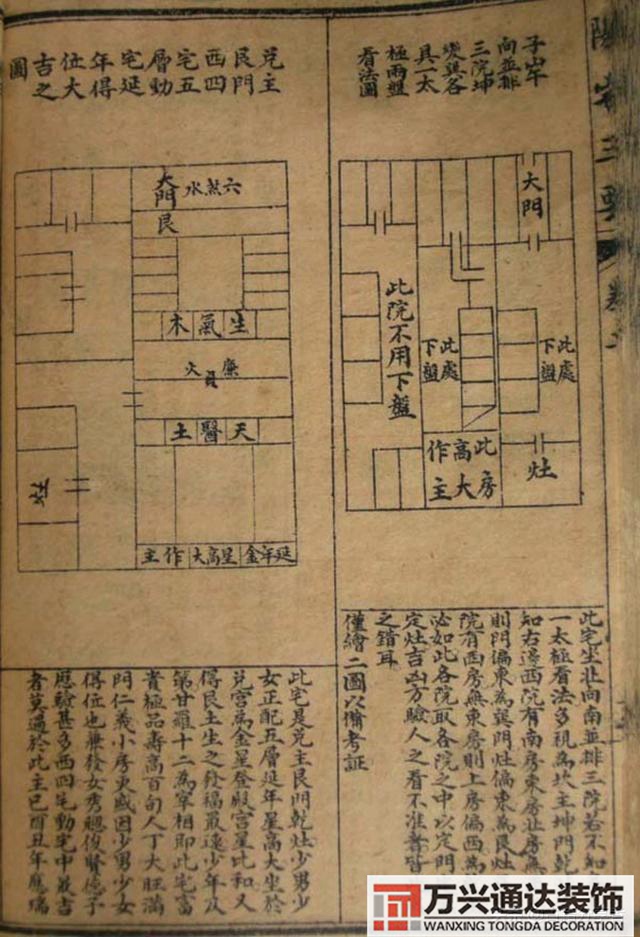 陽宅三要
子山午
向並排
三院坤
巽各
具一太
極兩盤
看法圖
大門
此院不用下盤
此處
下盤
此處
下盤
此房
高大
作主
灶
兌主
艮門
西四
宅五
層動
宅延
年得
位大
吉之
圖
大門
六煞水
艮
生氣木
廉貞火
天醫土
延年金星高大作主
灶
此宅坐北向南並排三院若不知
一太極看法多視為坎主坤門乾
知右邊西院有南房東房北房無
則門偏東為巽門灶偏東為艮灶
院有西房無東房則上房偏西為
必如此各院取各院之中以定門
定灶吉凶方驗人之看不准者皆
之錯耳
僅繪二圖以備考証
此宅是兌主艮門乾灶少男少
女正配五層延年星高大坐於
兌宮為金星登殿宮星比和又
得艮土生之發福最遠少年及
第甘羅十二為宰相即此宅富
貴極品壽高百旬人丁大旺滿
門仁義小房更盛因少男少女
得位也兼發女秀聰俊賢德子
應驗甚多西四宅動宅中最吉
者莫過於此主巳酉丑年應瑞
万兴通达装饰
WANXING TONGDA DECORATION